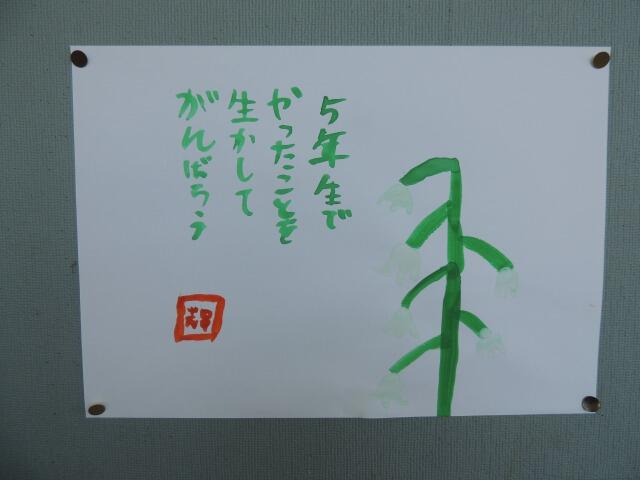 5年生で
やったことを
生かして
がんばろう